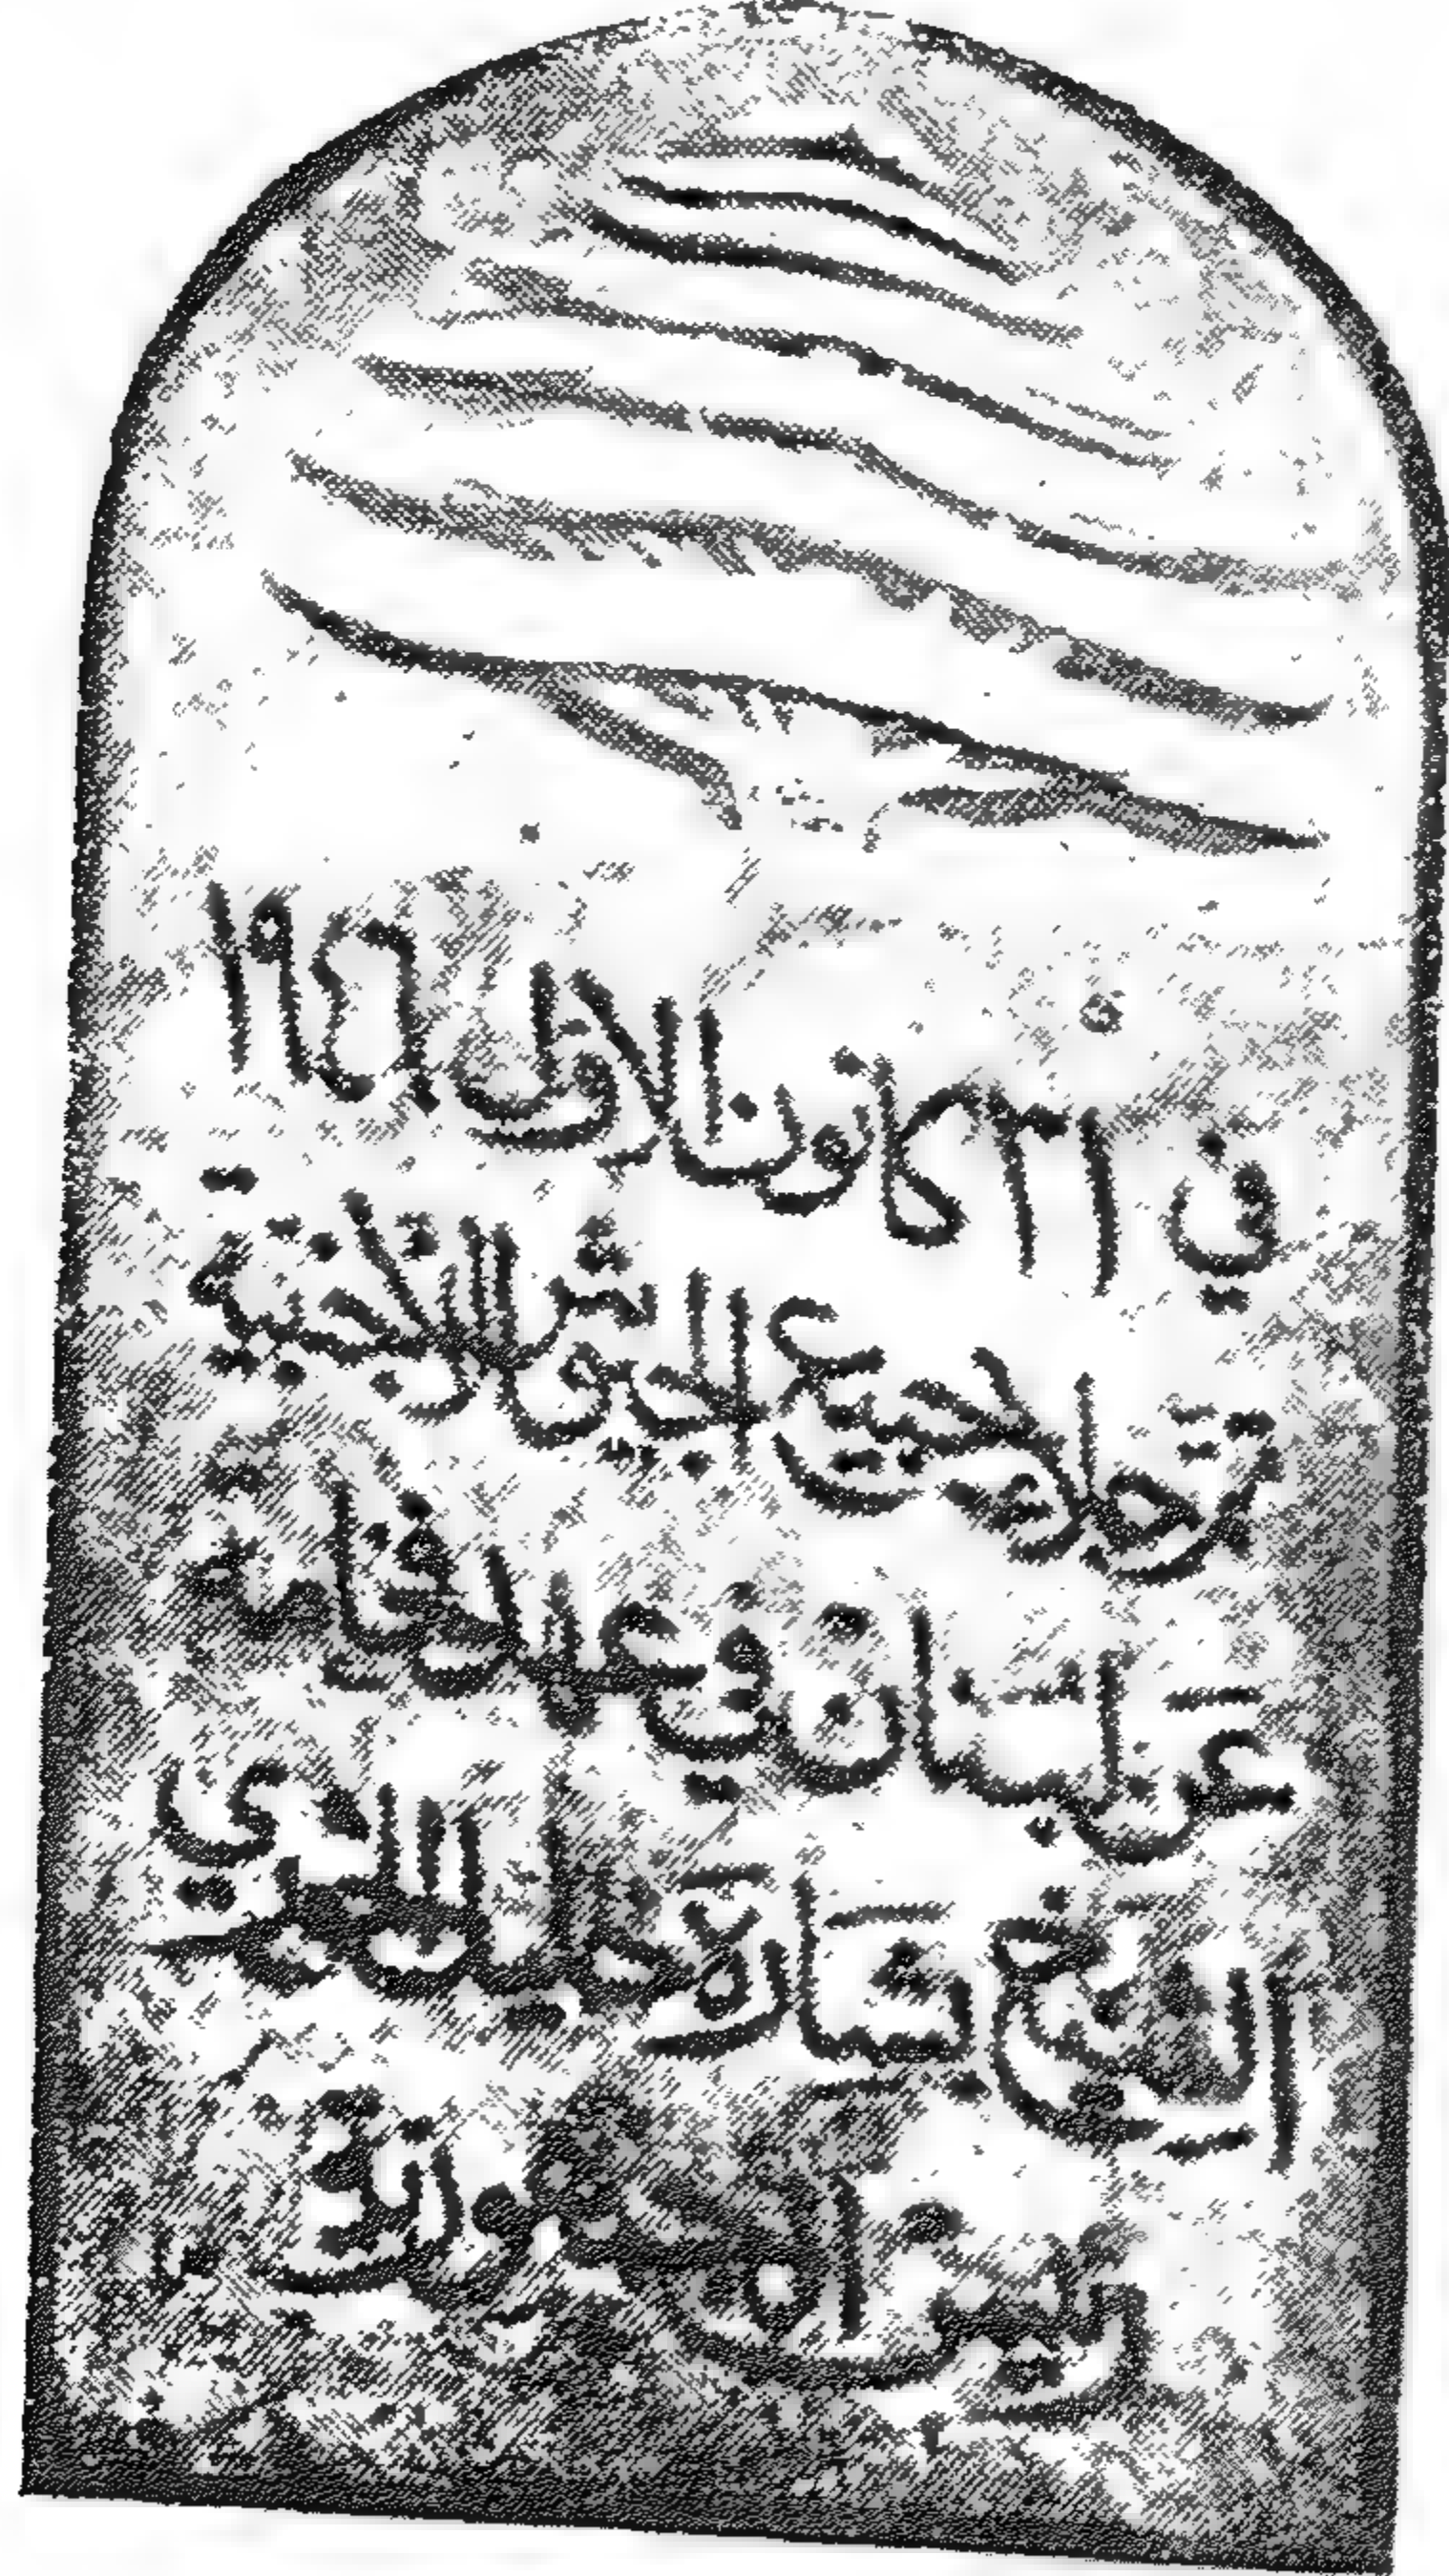 في ٣١ كانون الاول ١٩٤٦
جميع الجيوش الاجنبية
عن لبنان في عهد فخامة
الشيخ بشارة خليل الخوري
رئيس الجمهورية